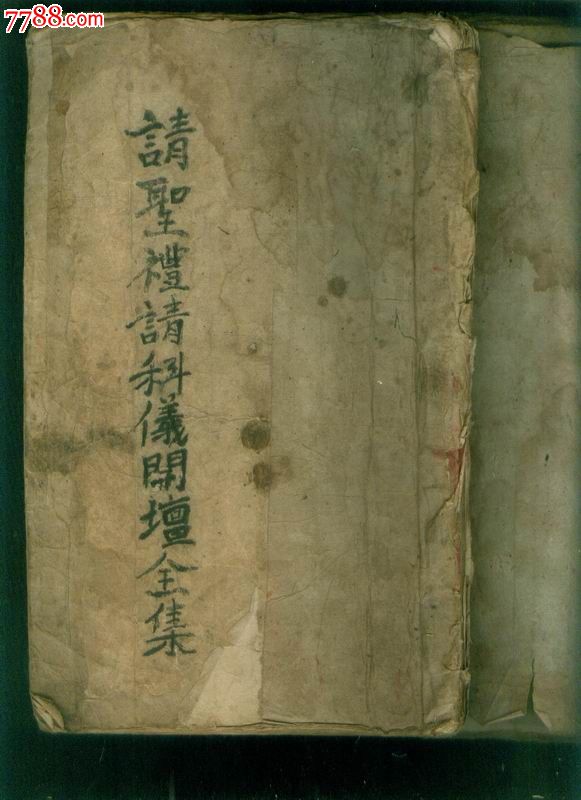 7788.com
請聖禮請科儀開壇全集